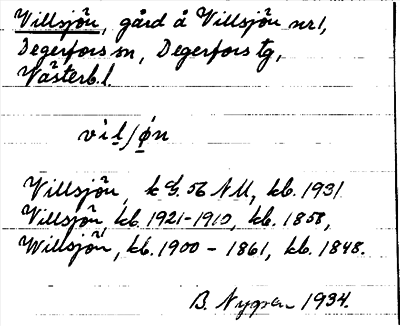 Villsjön, gård å Villsjön nr 1,
Degerfors sn, Degerfors tg,
Västerb. l.
vìl/ǿn
Villsjön, k G. 56 NU, kb. 1931
Villsjö, kb. 1921-1910, kb. 1858,
Willsjön, kb. 1900 - 1861, kb. 1848.
B. Nygren 1934.